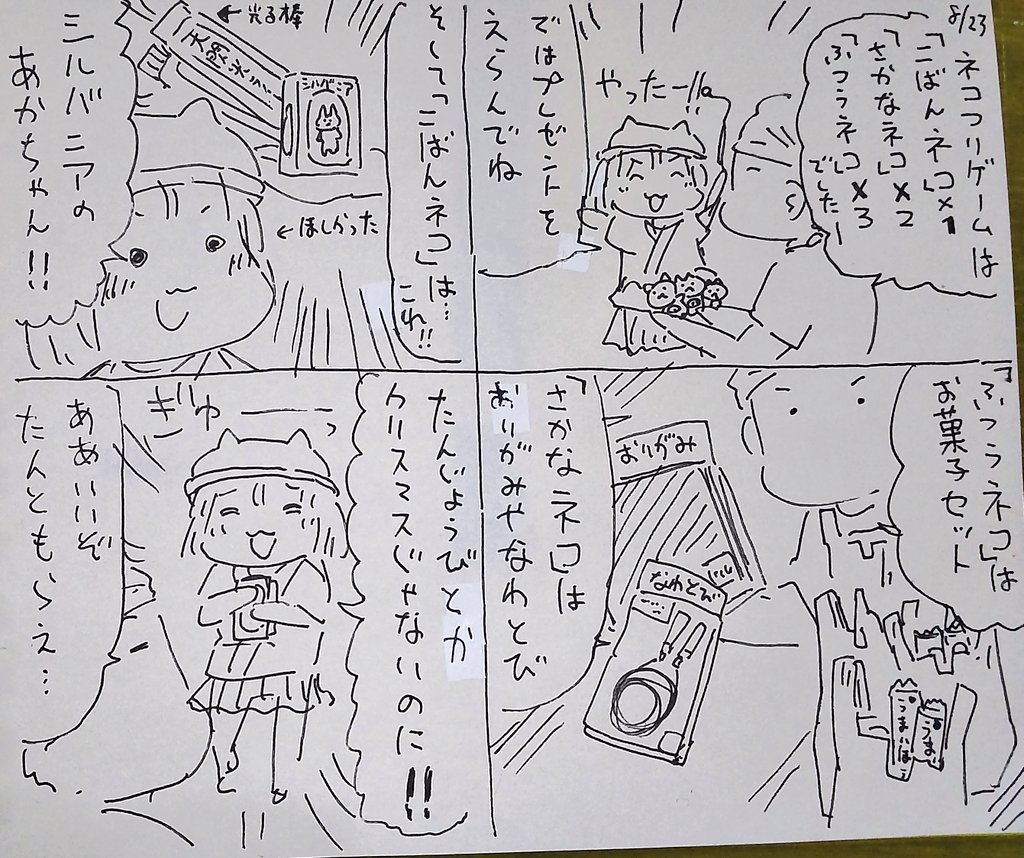 8/23
ネコつりゲームは
「こばんネコ」×1
「さかなネコ」×2
「ふつうネコ」×3
でしたー
やったーっ
ではプレゼントを
えらんでね
「ふつうネコ」は
お菓子セット
うまいぼう
うまい
「さかなネコ」は
おりがみやなわとび
おりがみ
なわとび
そして「こばんネコ」は…
これ!!
←光る棒
天然水
シルバニア
←ほしかった
シルバニアの
あかちゃん!!
たんじょうびとか
クリスマスじゃないのに!!
ぎゅーっ
ああいいぞ
たんともらえ…